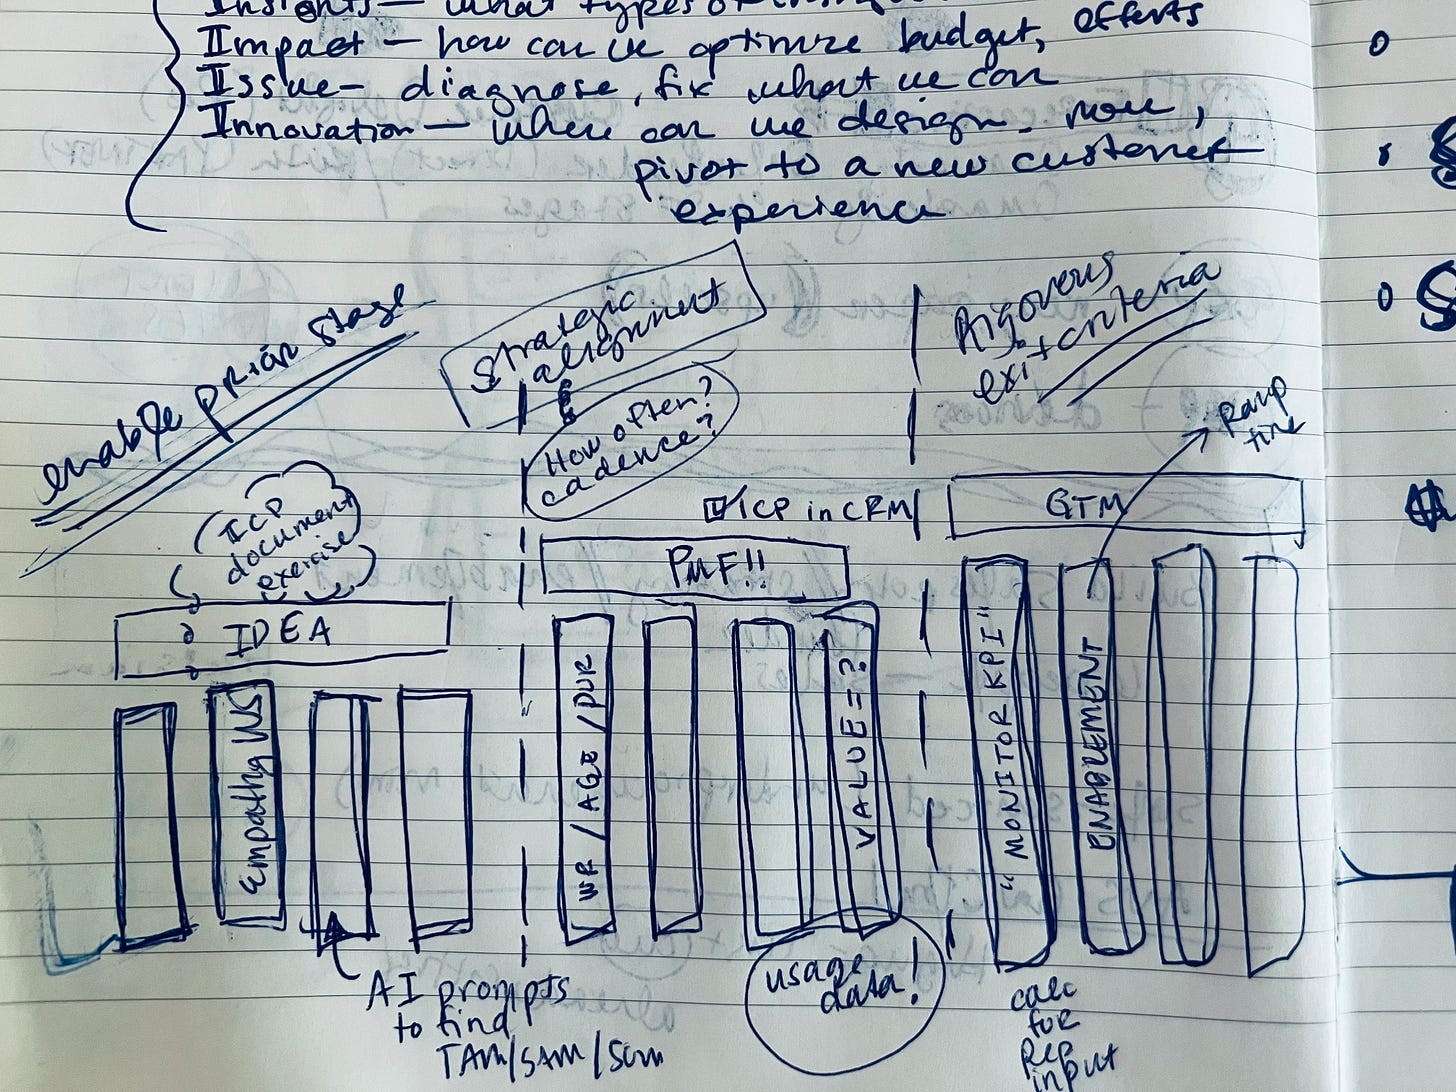 Insights — what types of
Impact — how can we optimize budget, efforts
Issue — diagnose, fix what we can
Innovation — where can we design, now,
pivot to a new customer
experience
enable prior stage
Strategic
alignment
How often?
cadence?
Rigorous
exit criteria
Ramp
time
ICP
document
exercise
ICP in CRM
GTM
PMF!!
IDEA
Empathy WS
WR / AGE / DUR
VALUE = ?
"MONITOR KPI"
ENABLEMENT
AI prompts
to find
TAM/SAM/SOM
usage
data!
calc
for
Rep
input